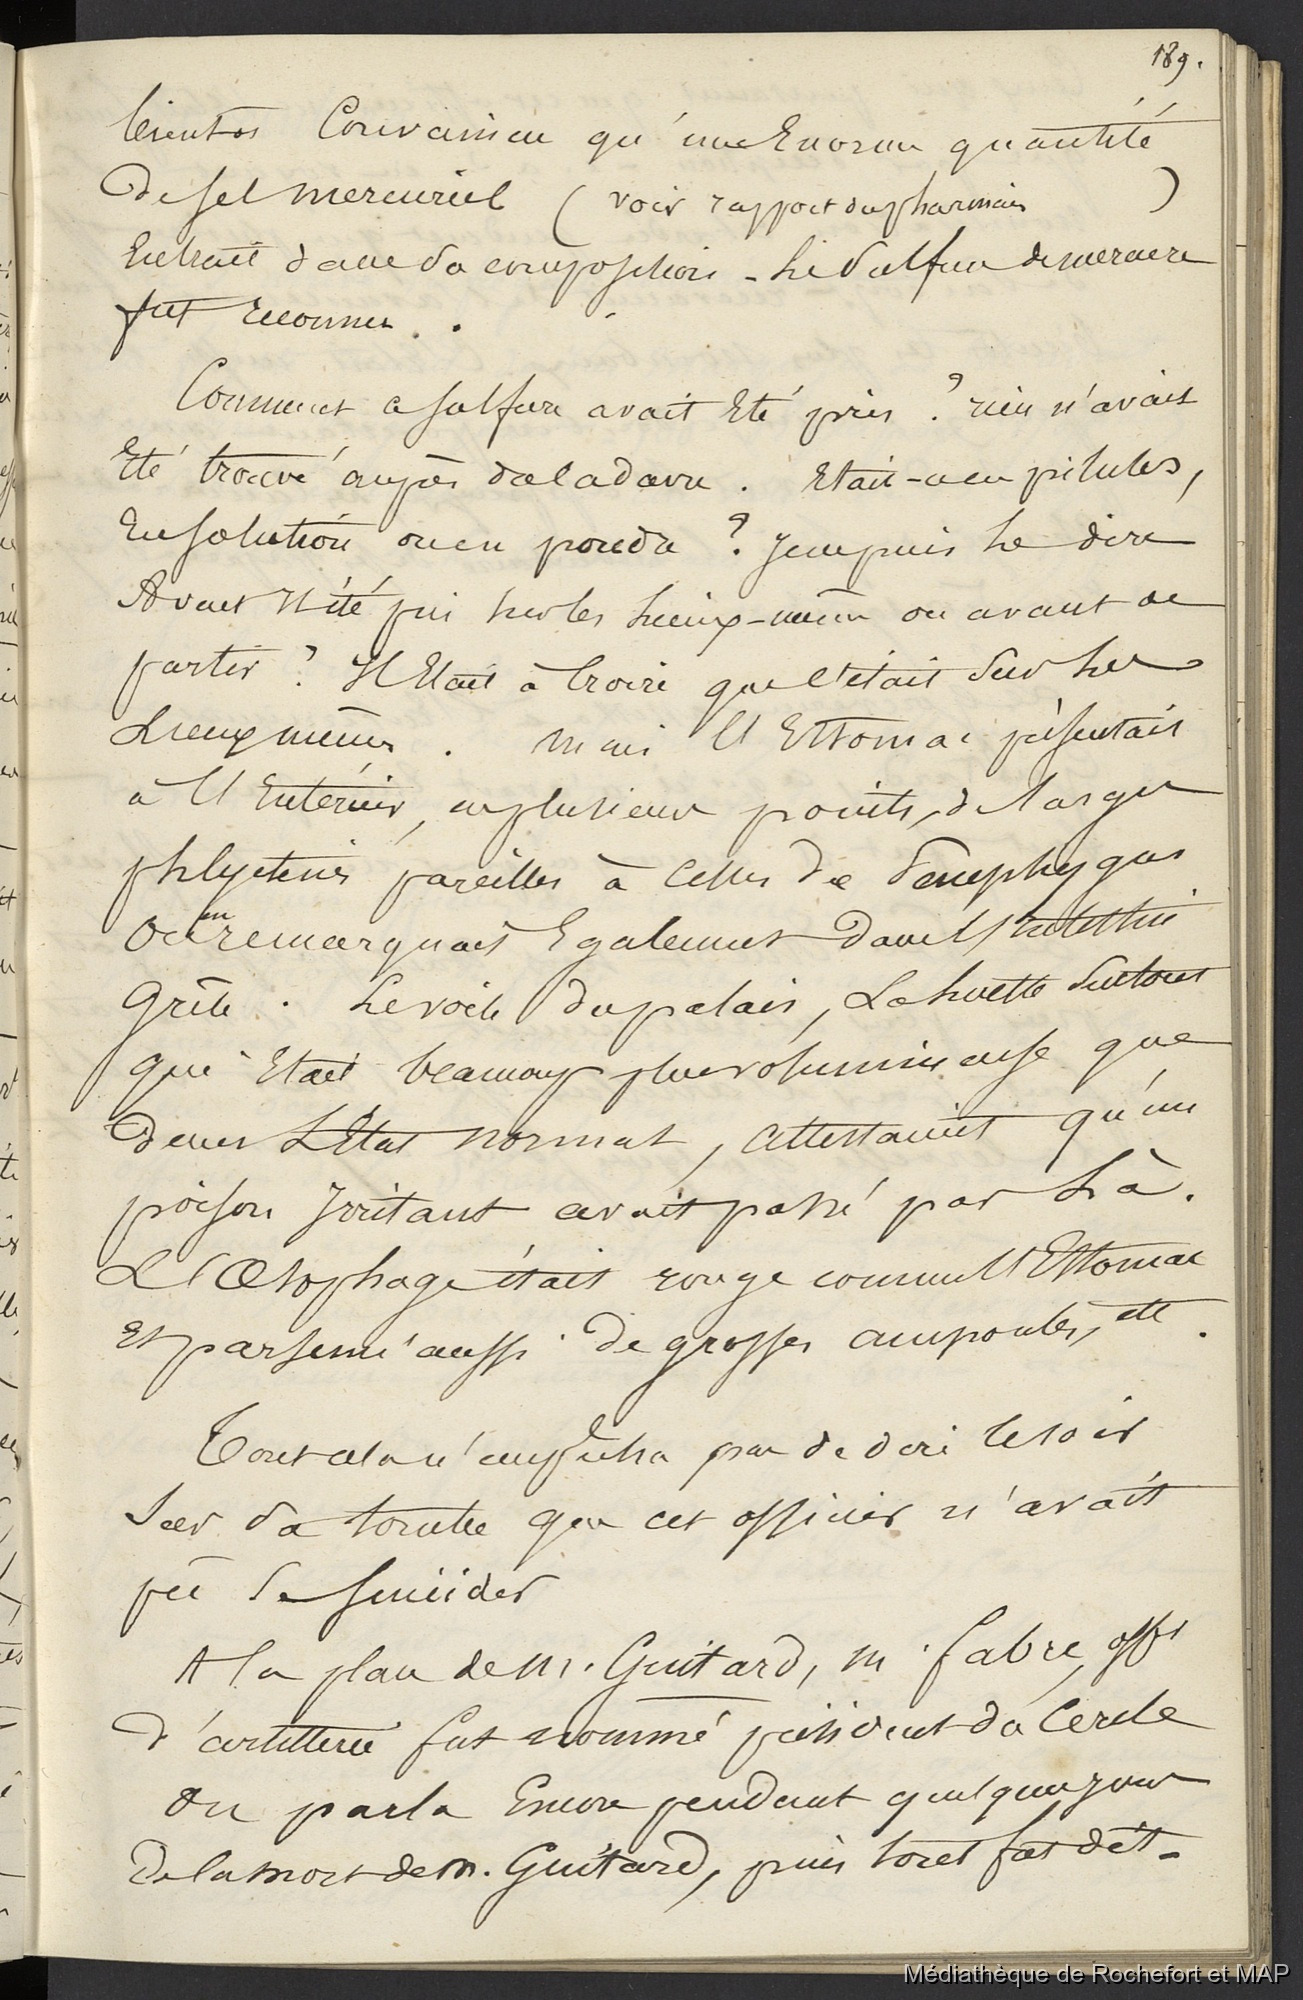 189.
bientôt convaincu qu'une Enorme quantité
De sel mercuriel ( voir rapport du pharmacien )
Entrait dans sa composition - Le sulfure de mercure
fut reconnu .
Comment ce sulfure avait Eté pris ? rien n'avait
Eté trouvé auprès du cadavre . Etait-ce en pilules,
En solution ou en poudre ? Je ne puis le dire
Avait il été pris sur les lieux-même ou avant de
partir ? Il Etait à croire que c'était sur les
Lieux mêmes . mais l'Estomac présentait
à l'Intérieur, en plusieurs points, de larges
phlyctènes pareilles à celles de Pemphygus
On en remarquait Egalement dans l'Intestin
Grêle . Le voile du palais, La luette surtout
qui Etait beaucoup plus volumineuse que
dans L'Etat normal, attestaient qu'un
poison Irritant avait passé par Là.
L'Œsophage était rouge comme l'Estomac
Et parsemé aussi de grosses ampoules, etc .
Tout cela n'empêcha pas de dire le soir
sur sa tombe que cet officier n'avait
pû se suicider
A la place de M. Guitard, M. Fabre, offr
d'artillerie fut nommé président du Cercle
On parla Encore pendant quelques jours
De la mort de M. Guitard, puis tout fut dit -
Médiathèque de Rochefort et MAP